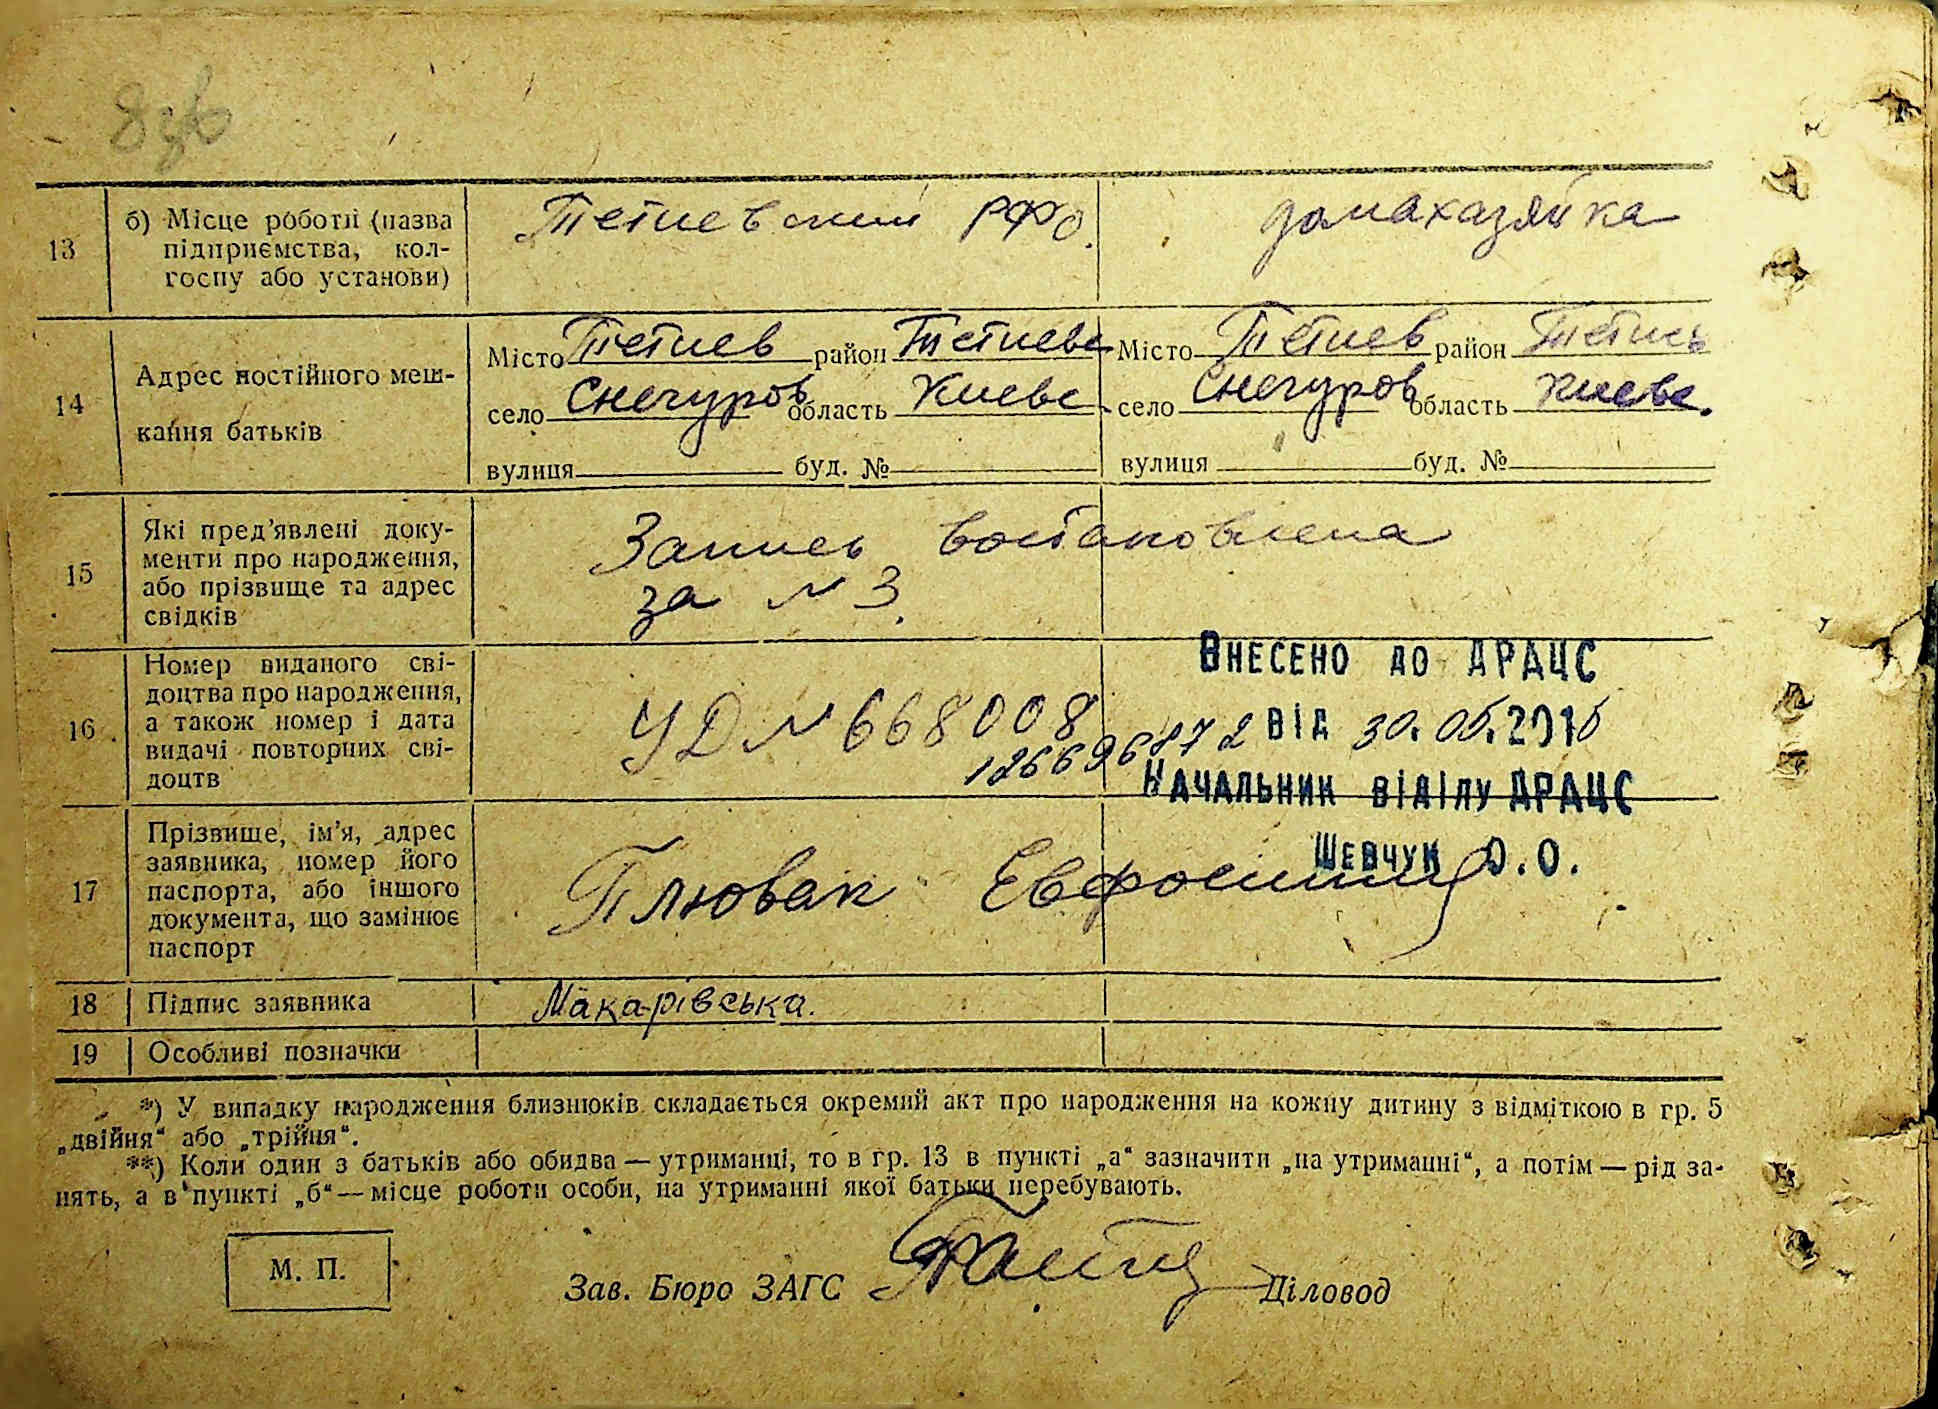 13 б) Місце роботи (назва підприємства, колгоспу або установи)
Тетиевский РФО.
домахазяйка
14 Адрес постійного мешкання батьків
Місто Тетиев район Тетиевс
село Снегуров область Киевс
вулиця буд. №
Місто Тетиев район Тетиев
село Снегуров область Киевс.
вулиця буд. №
15 Які пред'явлені документи про народження, або прізвище та адрес свідків
Запись востановлена
за № 3.
16 Номер виданого свідоцтва про народження, а також номер і дата видачі повторних свідоцтв
УД № 668008
ВНЕСЕНО ДО ДРАЦС
ВІД 30.05.2015
НАЧАЛЬНИК ВІДІЛУ ДРАЦС
ШЕВЧУК О.О.
17 Прізвище, ім'я, адрес заявника, номер його паспорта, або іншого документа, що замінює паспорт
Плювак Евфросиния
18 Підпис заявника
Макарівська.
19 Особливі позначки
*) У випадку народження близнюків складається окремий акт про народження на кожну дитину з відміткою в гр. 5
„двійня“ або „трійня“.
**) Коли один з батьків або обидва — утриманці, то в гр. 13 в пункті „а“ зазначити „на утриманні“, а потім — рід за-
нять, а в пункті „б“ — місце роботи особи, на утриманні якої батьки перебувають.
М. П.
Зав. Бюро ЗАГС
Діловод